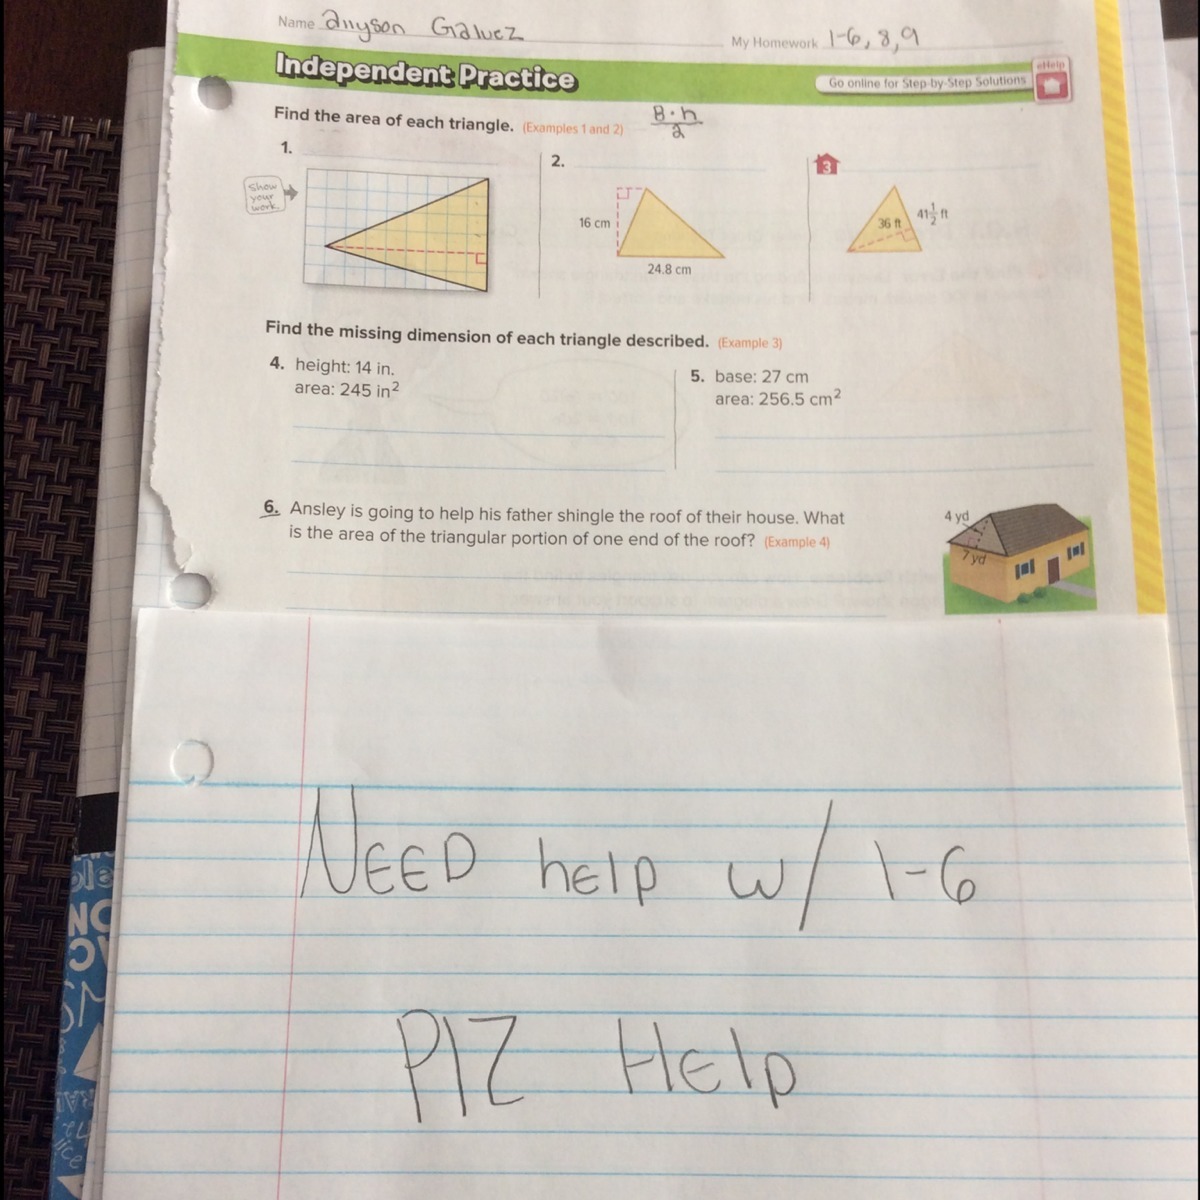 Name allyson Galvez
My Homework 1-6, 8, 9
Independent Practice
Go online for Step-by-Step Solutions
eHelp
Find the area of each triangle. (Examples 1 and 2)
B·h
2
1.
2.
3
Show
your
work.
16 cm
24.8 cm
36 ft
41 1/2 ft
Find the missing dimension of each triangle described. (Example 3)
4. height: 14 in.
area: 245 in²
5. base: 27 cm
area: 256.5 cm²
6. Ansley is going to help his father shingle the roof of their house. What
is the area of the triangular portion of one end of the roof? (Example 4)
4 yd
7 yd
NEED help w/ 1-6
PlZ Help